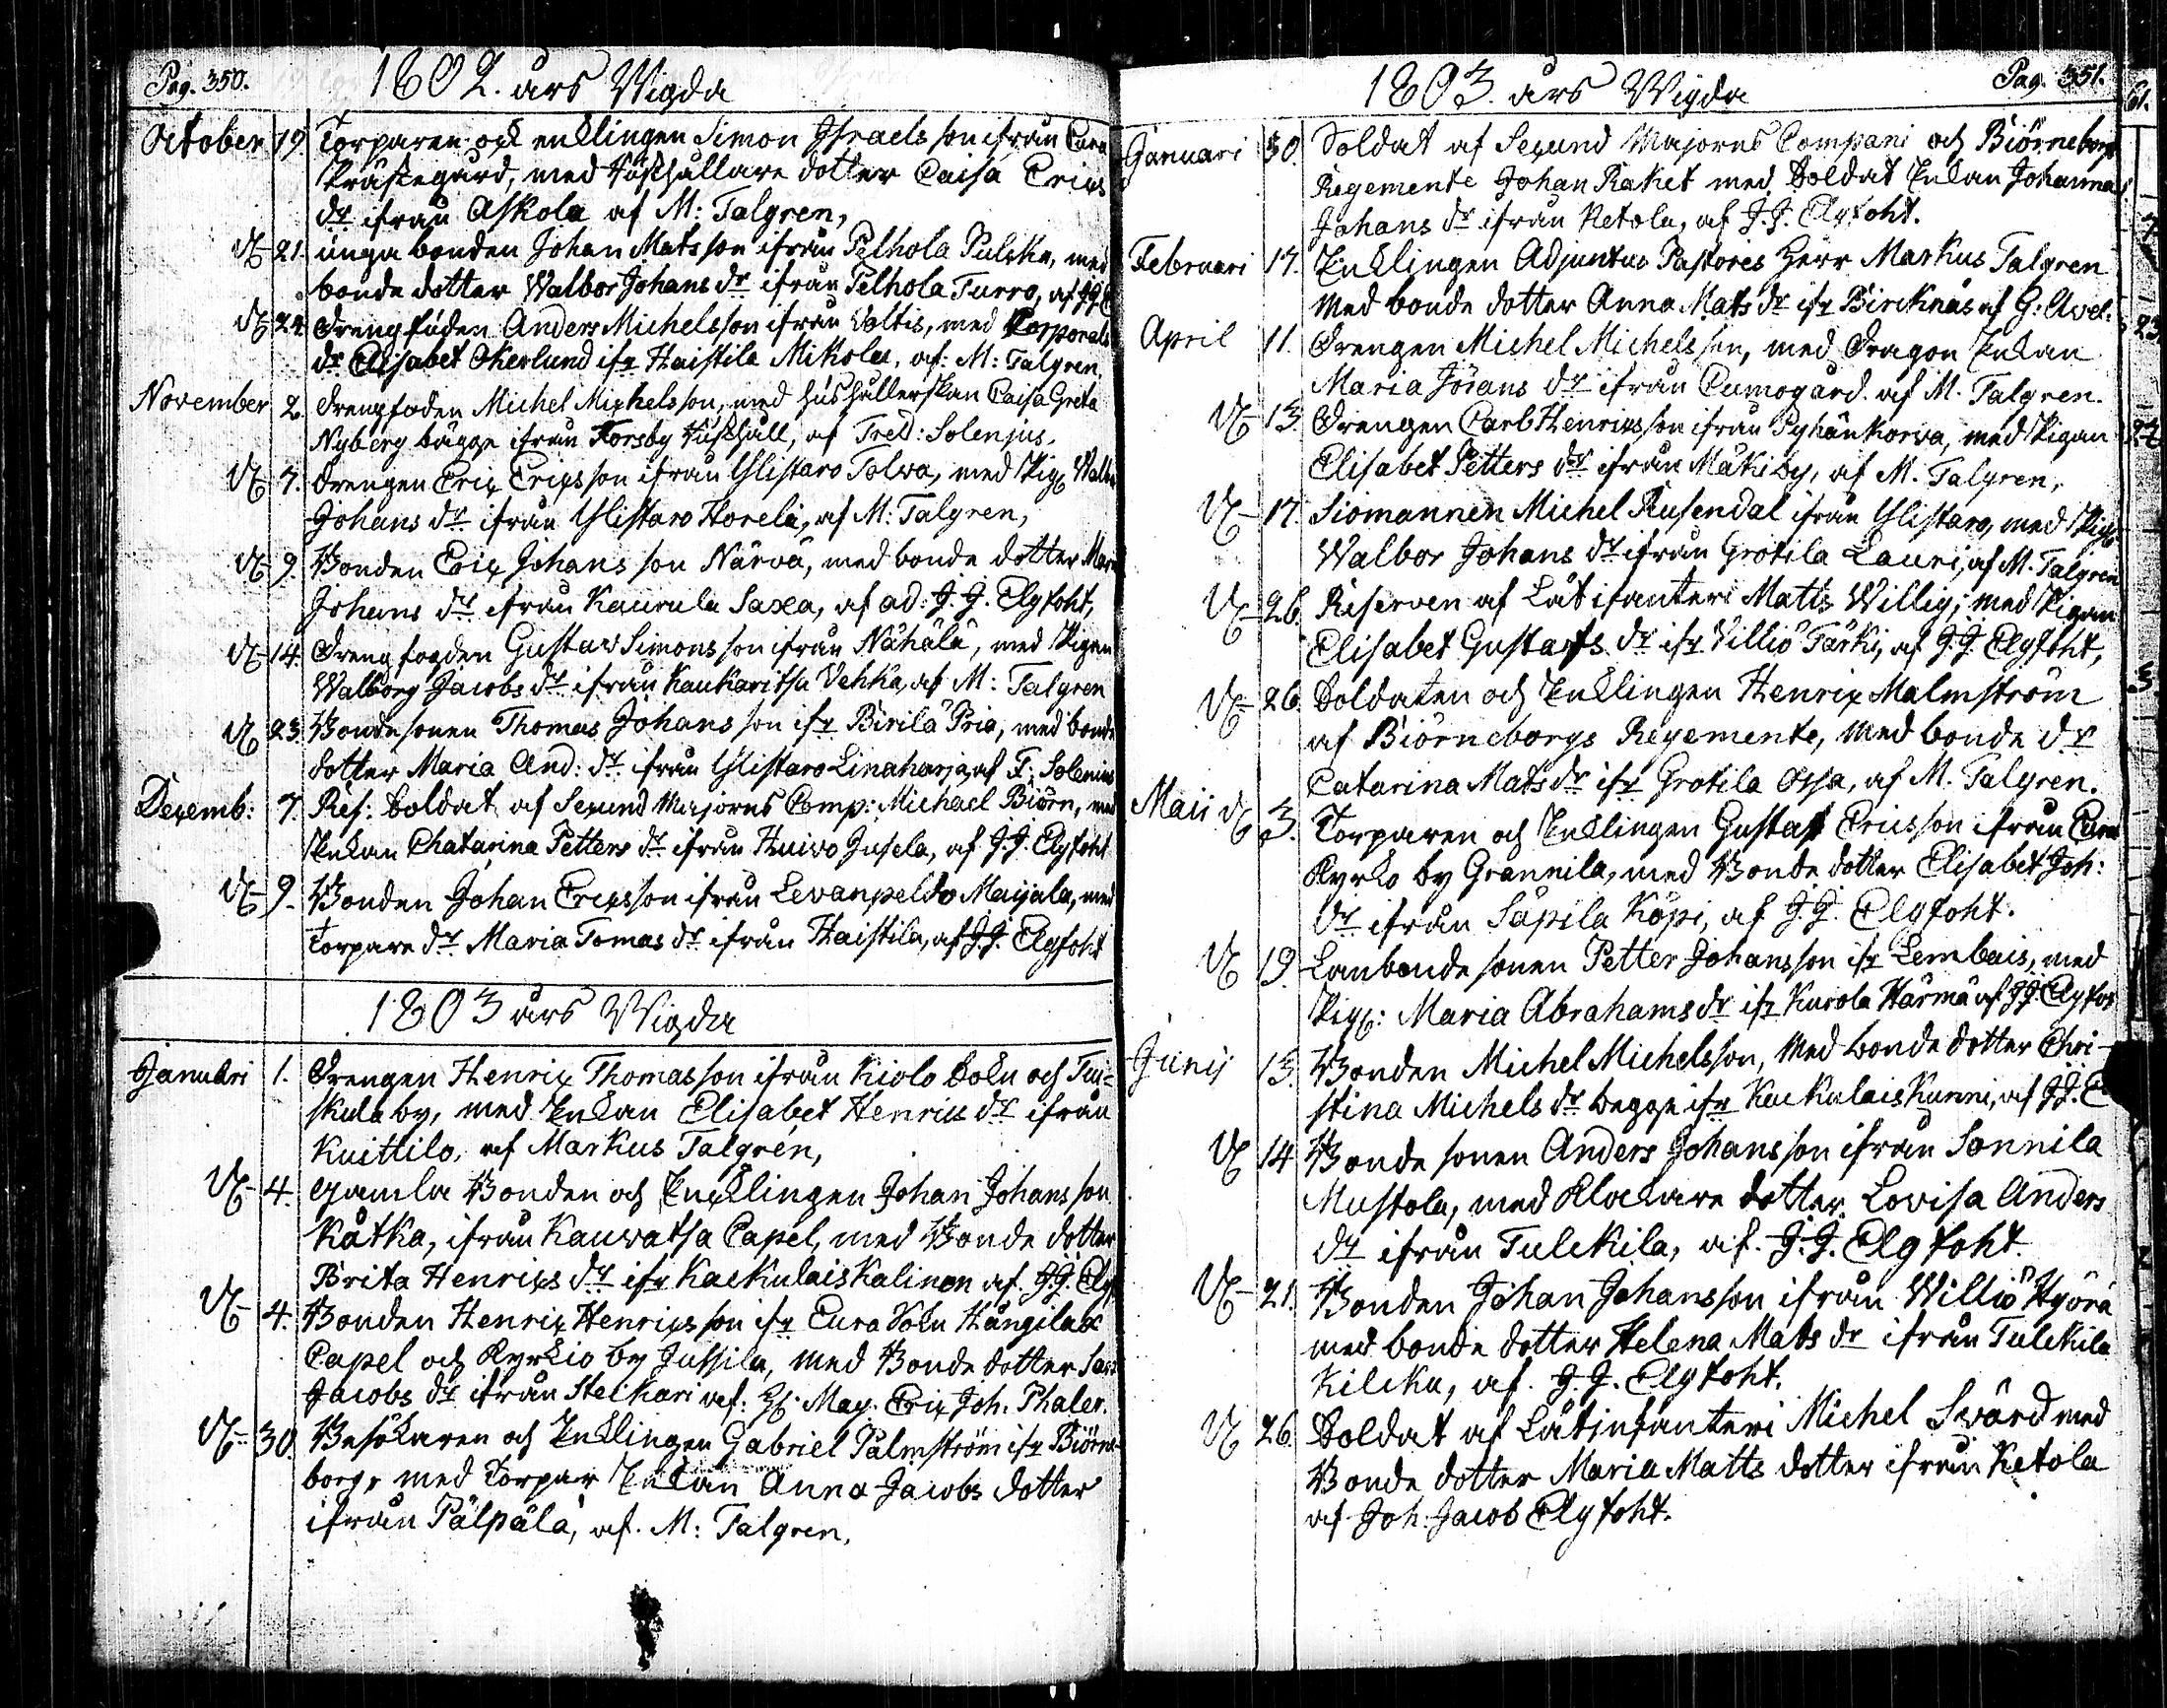 Pag. 350.
1802. års Wigda
October 19. Torparen och encklingen Simon Israels son ifrån Eura
Prästegård, med Hushållare dotter Caisa Erics
dr ifrån Askola af M: Talgren,
21. unga bonden Johan Matsson ifrån Pelhola Pulcka, med
bonde dotter Walbor Johans dr ifrån Pelhola Turro, af JJE
24. drengfåden Anders Michelsson ifrån Voltis, med Corporals
dr Elisabet Åkerlund ifr Haistila Mikola, af: M: Talgren,
November 2. drengfoden Michel Michelsson, med hushållerskan Caisa Greta
Nyberg bägge ifrån Forsby Hushåll, af Fred: Solenius,
7. drengen Erix Erixsson ifrån Ylistaro Tolva, med Pig: Walbor
Johans dr ifrån Ylistaro Horeli, af M: Talgren,
9. Bonden Erix Johansson Närvä, med bonde dotter Maria
Johans dr ifrån Kaurula Saxa, af ad. J. J. Elgfoht,
14. Drengfogden Gustav Simonsson ifrån Nähälä, med Pigan
Walborg Jacobs dr ifrån Kaukaritsa Vehka, af M: Talgren
23. Bondesonen Thomas Johansson ifr Pirilä Prio, med bonde
dotter Maria And: dr ifrån Ylistaro Linaharja, af F: Solenius
Decemb: 7. Ref: Soldat af Secund Majorns Comp: Michael Biörn, med
Enkan Chatarina Petters dr ifrån Huivo Jusela, af J. J. Elgfoht
9. Bonden Johan Erixsson ifrån Levanpelto Maijala, med
Torpare dr Maria Tomas dr ifrån Haistila, af J.J. Elgfoht
1803 års Wigda
Januari 1. Drengen Henrix Thomasson ifrån Kiolo Sokn och Tui-
skula by, med Enkan Elisabet Henrics dr ifrån
Kuittilo, af Markus Talgrén,
4. gamla Bonden och Encklingen Johan Johansson
Kåtka, ifrån Kauvatsa Capel, med Bonde dotter
Brita Henrixs dr ifr Kackulais Kalinen af. J.J. Elgf
4. Bonden Henrix Henrixsson ifr Eura Sokn Hångilax
Capel och Kyrkio by Jussila, med Bonde dotter
Jacobs dr ifrån Steikari af: H. Mag. Erix Joh. Phaler.
30. Besökaren och Encklingen Gabriel Palmström ifr Biörne-
borg, med Torpar Enkan Anna Jacobs dotter
ifrån Pälpälä, af. M: Talgren.
Pag. 351.
1803. års Wigda
Januari 30. Soldat af Secund Majorns Compani och Biörneborgs
Regemente Johan Raket med Soldat Enkan Johanna
Johans dr ifrån Ketola, af J. J. Elgfoht.
Februari 17. Encklingen Adjunctus Pastores Herr Markus Talgren
med bonde dotter Anna Mats dr ifr Bircknäs af G: Avel:
April 11. Drengen Michel Michelsson, med Dragon Enkan
Maria Jörans dr ifrån Cumogård. af M. Talgren.
13. Drengen Carl Henrixsson ifrån Pyhänkorva, med Pigan
Elisabet Petters dr ifrån Mäkiby, af M. Talgren,
17. Siomannen Michel Rusendal ifrån Ylistaro, med Pigan
Walbor Johans dr ifrån Grotila Lauri, af M. Talgren
26. Reserven af Lät ifanteri Matts Willig; med Pigan
Elisabet Gustafs dr ifr Villiö Färki, af J. J. Elgfoht,
26. Soldaten och Encklingen Henrix Malmström
af Biörneborgs Regemente, med bonde dr
Catarina Mats dr ifr Grotila Ossa, af M. Talgren.
Maii 3. Torparen och Encklingen Gustaf Ericsson ifrån Eura
Kyrko by Grannila, med Bonde dotter Elisabet Joh:
dr ifrån Säpilä Köpi, af J. J. Elgfoht.
19. Lanbonde sonen Petter Johansson ifr Lembais, med
Pig: Maria Abrahams dr ifr Kurola Härmä af J.J. Elgfoh
Junij 13. Bonden Michel Michelsson, med bonde dotter Chri-
stina Michels dr begge ifr Kackulais Kunni, af J.J. E
14 Bonde sonen Anders Johansson ifrån Sonnila
Mustola, med Klockare dotter Lovisa Anders
dr ifrån Tulckila, af. J. J. Elgfoht.
21. Bonden Johan Johansson ifrån Williö Hyörä
med bonde dotter Helena Mats dr ifrån Tulckila
Kilcku, af. J. J. Elgfoht.
26. Soldat af Lätinfanteri Michel Svärd med
Bonde dotter Maria Matts dotter ifrån Ketola
af Joh. Jacob Elgfoht.